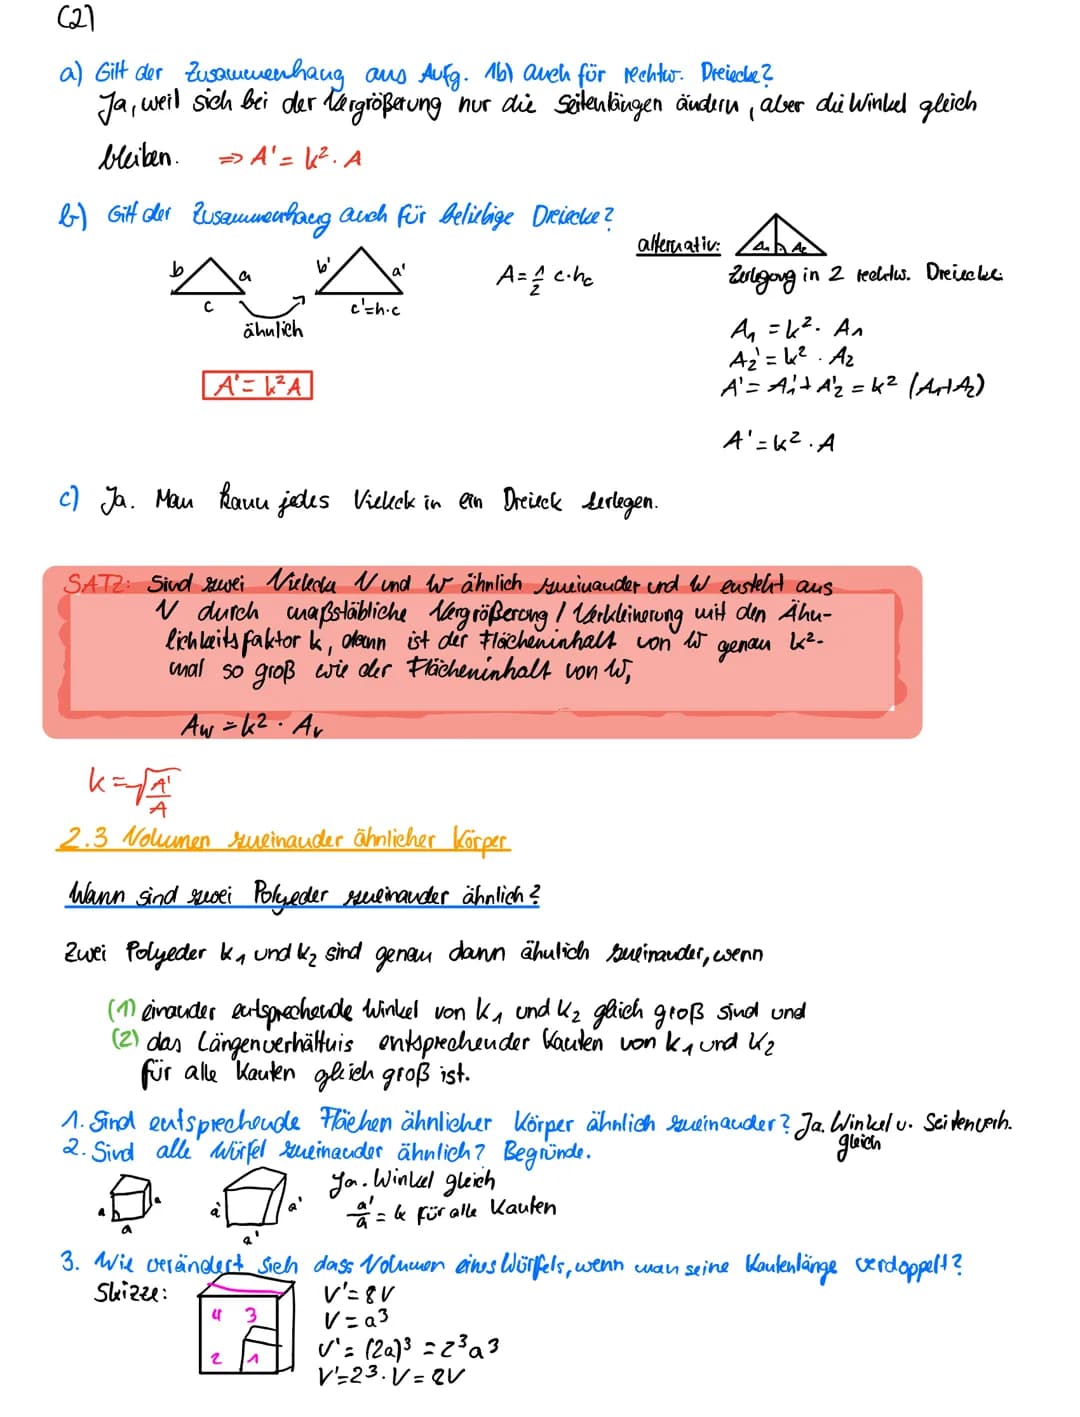 (2)
a) Gilt der Zusammenhang aus Aufg. 1b) auch für rechtw. Dreiecke?
Ja, weil sich bei der Vergrößerung nur die Seitenlängen ändern, aber die Winkel gleich
bleiben. => A' = k². A
b) Gilt der Zusammenhang auch für beliebige Dreiecke?
b a c
b' a' c'=h·c
ähnlich
A = 1/2 c·hc
A' = k²A
alternativ: A1 A2
Zerlegung in 2 rechtw. Dreiecke.
A1 = k². A1
A2' = k². A2
A' = A1' + A2' = k² (A1+A2)
A' = k². A
c) Ja. Man kann jedes Vieleck in ein Dreieck zerlegen.
SATZ: Sind zwei Vielecke V und W ähnlich zueinander und W ensteht aus
V durch maßstäbliche Vergrößerung / Verkleinerung mit den Ähn-
lichkeitsfaktor k, dann ist der Flächeninhalt von W genau k²-
mal so groß wie der Flächeninhalt von W,
Aw = k² · Av
k = √A'/A
2.3 Volumen zueinander ähnlicher Körper
Wann sind zwei Polyeder zueinander ähnlich?
Zwei Polyeder k1 und k2 sind genau dann ähnlich zueinander, wenn
(1) einander entsprechende Winkel von k1 und k2 gleich groß sind und
(2) das Längenverhältnis entsprechender Kanten von k1 und k2
für alle Kanten gleich groß ist.
1. Sind entsprechende Flächen ähnlicher Körper ähnlich zueinander? Ja. Winkel u. Seitenverh.
gleich
2. Sind alle Würfel zueinander ähnlich? Begründe.
a a a
a' a' a'
Ja. Winkel gleich
a'/a = k für alle Kanten
3. Wie verändert sich dass Volumen eines Würfels, wenn man seine Kantenlänge verdoppelt?
Skizze:
4 3
2 1
V' = 8V
V = a³
V' = (2a)³ = 2³a³
V' = 2³·V = 8V